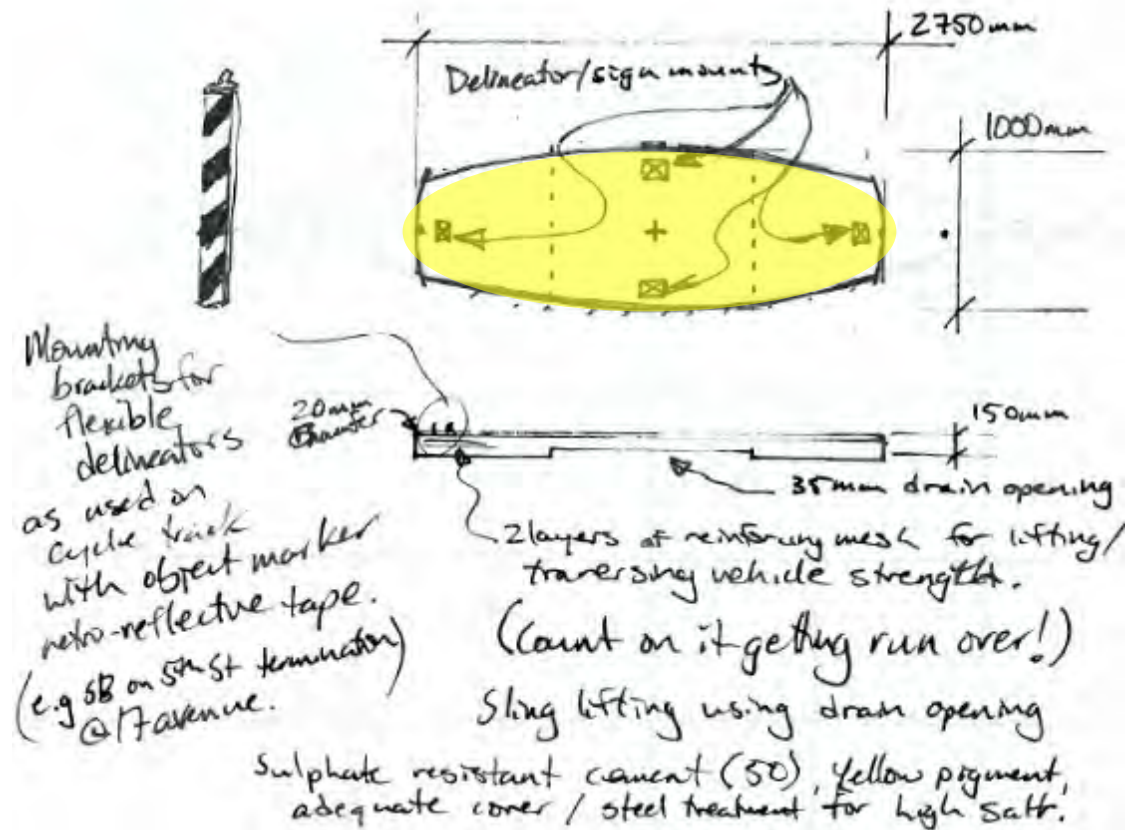 2750mm
Delineator/sign mounts
1000mm
Mounting
brackets for
flexible
delineators
as used on
cycle track
with object marker
retro-reflective tape.
(e.g SB on 5th St termination)
@17avenue.
20mm
150mm
35mm drain opening
2 layers of reinforcing mesh for lifting/
traversing vehicle strength.
(Count on it getting run over!)
Sling lifting using drain opening
Sulphate resistant cement (50), yellow pigment,
adequate cover / steel treatment for high salt.